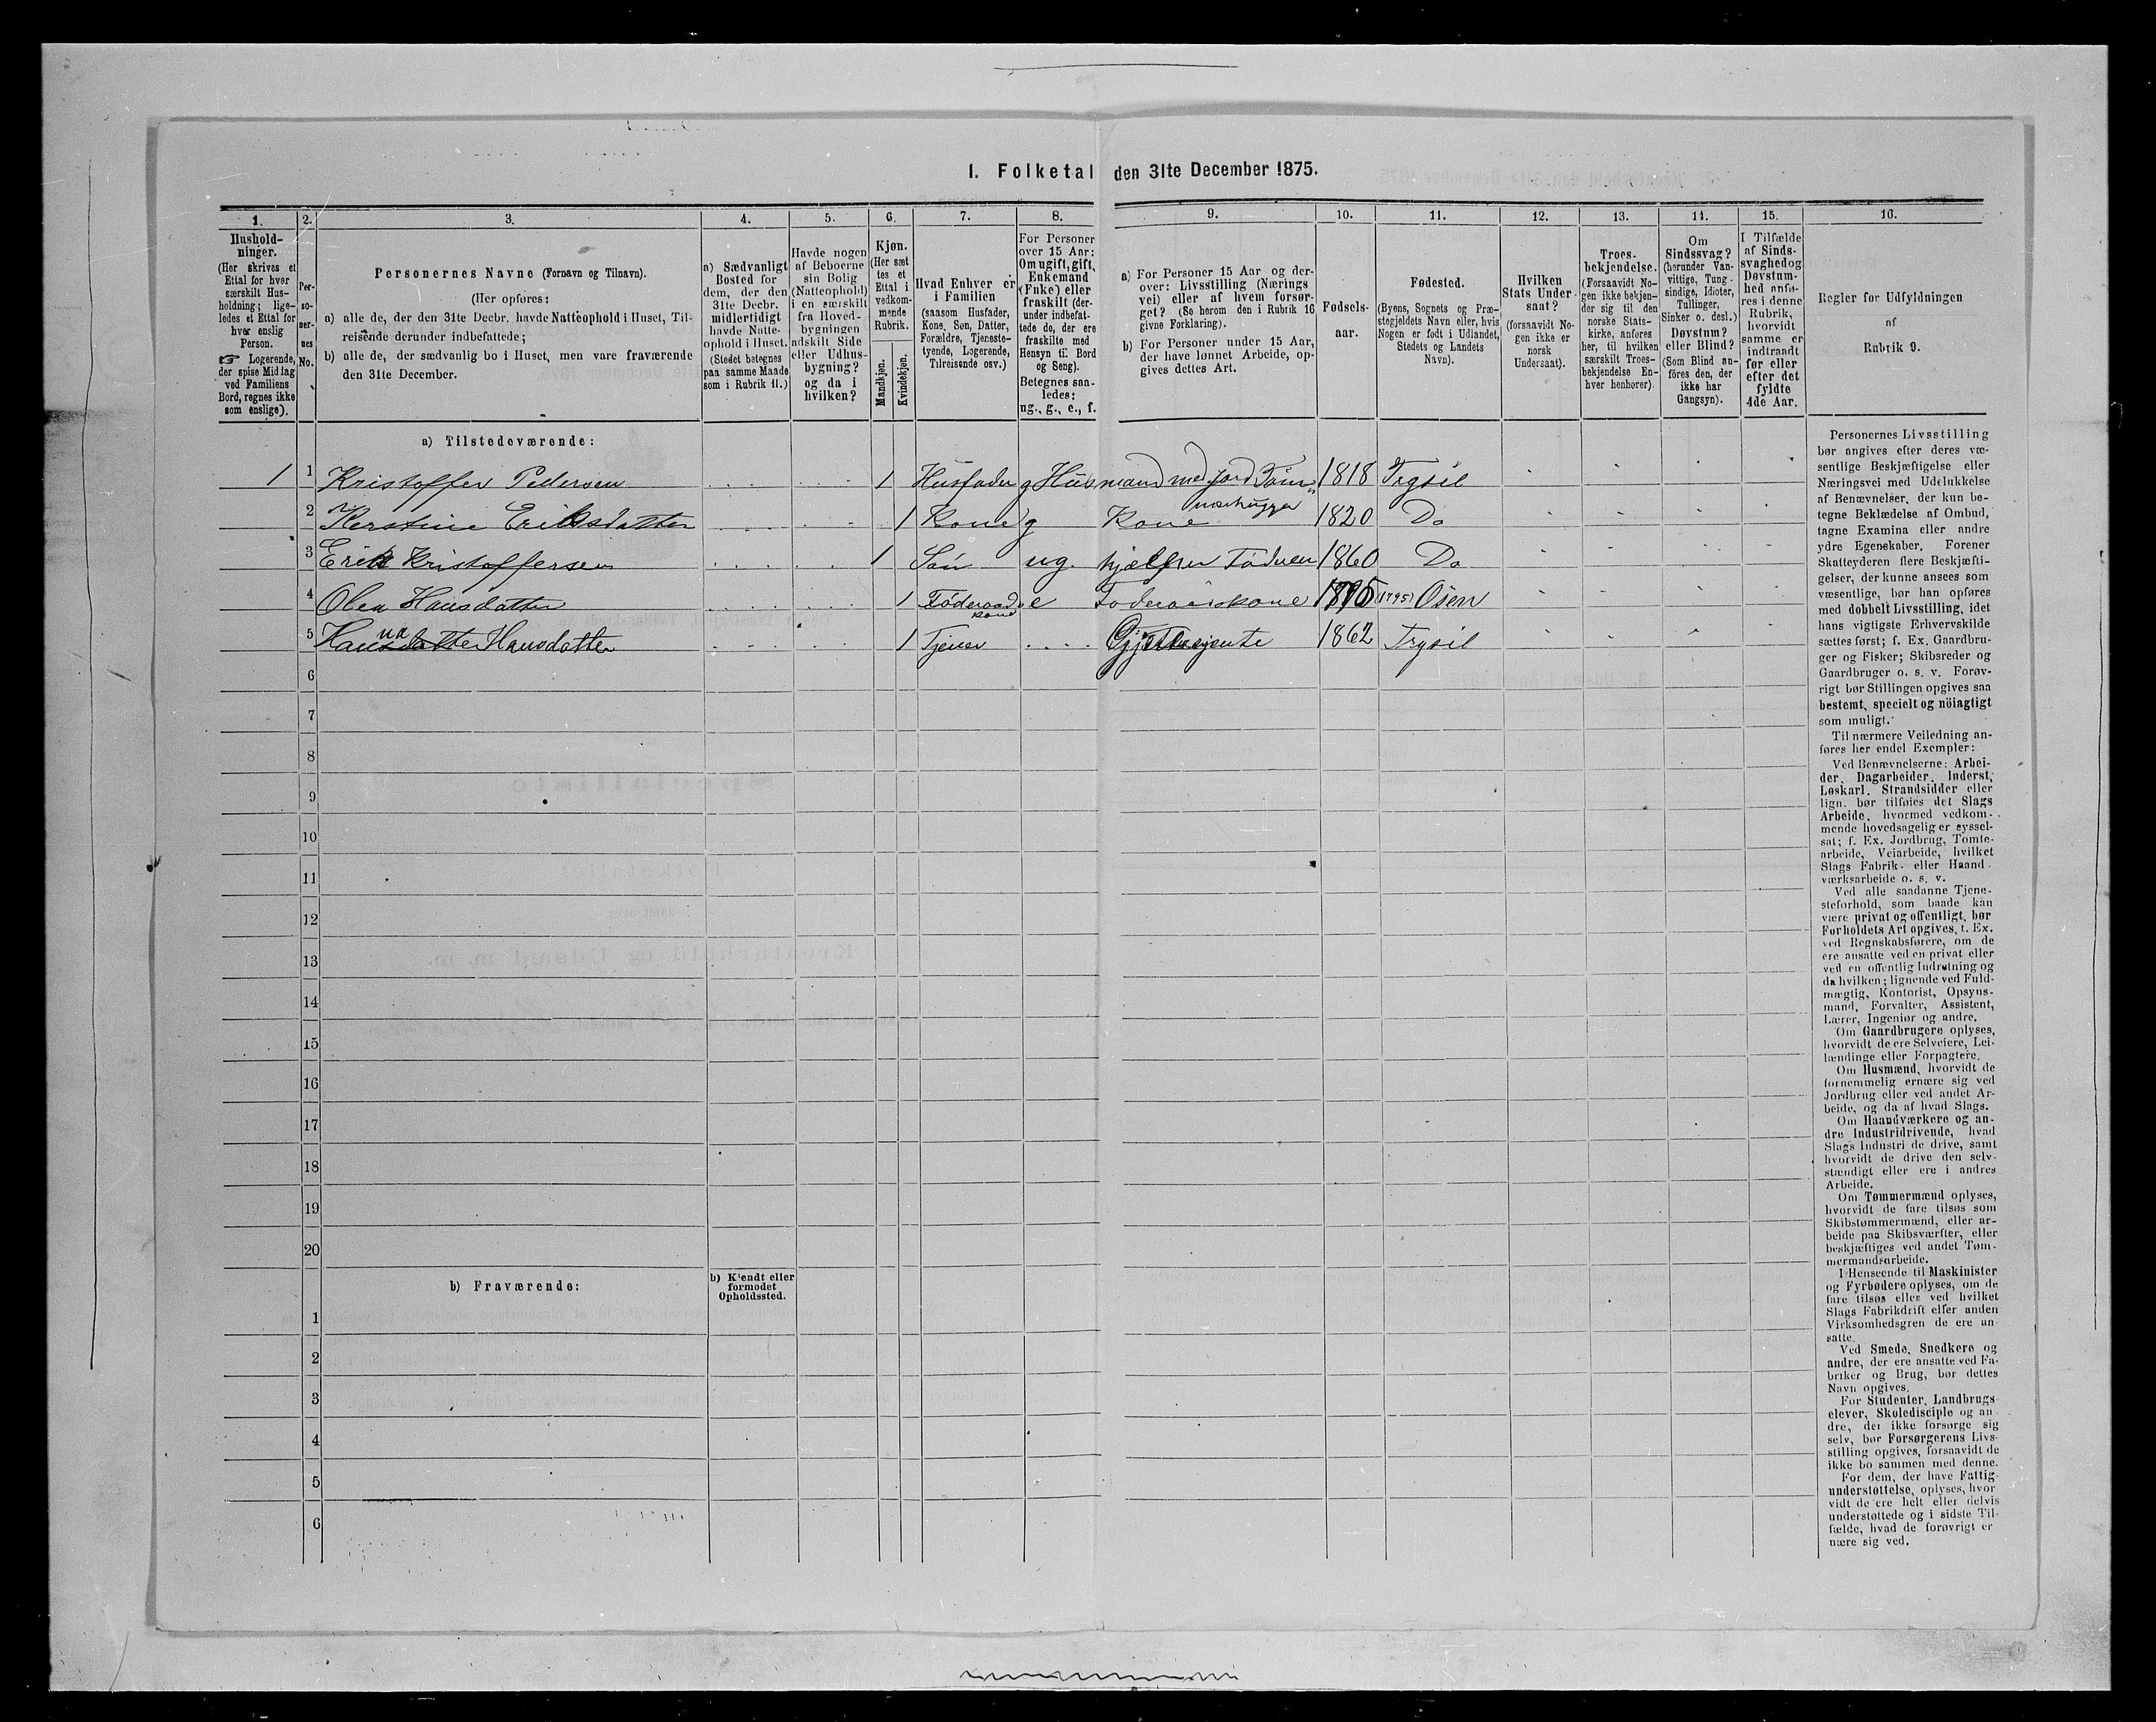 I. Folketal den 31te December 1875.
1. 2. 3. 4. 5. 6. 7. 8. 9. 10. 11. 12. 13. 14. 15. 16.
Hushold-
ninger.
(Her skrives et
Ettal for hver
særskilt Hus-
holdning; lige-
ledes et Ettal for
hver enslig
Person.
☞ Logerende,
der spise Middag
ved Familiens
Bord, regnes ikke
som enslige).
Per-
so-
ner-
nes
No.
Personernes Navne (Fornavn og Tilnavn).
(Her opføres:
a) alle de, der den 31te Decbr. havde Natteophold i Huset, Til-
reisende derunder indbefattede;
b) alle de, der sædvanlig bo i Huset, men vare fraværende
den 31te December.
a) Sædvanligt
Bosted for
dem, der den
31te Decbr.
midlertidigt
havde Natte-
ophold i Huset.
(Stedet betegnes
paa samme Maade
som i Rubrik 11.)
Havde nogen
af Beboerne
sin Bolig
(Natteophold)
i en særskilt
fra Hoved-
bygningen
adskilt Side
eller Udhus-
bygning?
og da i
hvilken?
Kjøn.
(Her sæt
tes et
Ettal i
vedkom-
mende
Rubrik.
Mandkjøn.
Kvindekjøn.
Hvad Enhver er
i Familien
(saasom Husfader,
Kone, Søn, Datter,
Forældre, Tjeneste-
tyende, Logerende,
Tilreisende osv.)
For Personer
over 15 Aar:
Om ugift, gift,
Enkemand
(Enke) eller
fraskilt (der-
under indbefat-
tede de, der ere
fraskilte med
Hensyn til Bord
og Seng).
Betegnes saa-
ledes:
ug., g., e., f.
a) For Personer 15 Aar og der-
over: Livsstilling (Nærings
vei) eller af hvem forsør-
get? (Se herom den i Rubrik 16
givne Forklaring).
b) For Personer under 15 Aar,
der have lønnet Arbeide, op-
gives dettes Art.
Fødsels-
aar.
Fødested.
(Byens, Sognets og Præ-
stegjeldets Navn eller, hvis
Nogen er født i Udlandet,
Stedets og Landets
Navn).
Hvilken
Stats Under-
saat?
(forsaavidt No-
gen ikke er
norsk
Undersaat).
Troes-
bekjendelse.
(Forsaavidt No-
gen ikke bekjen-
der sig til den
norske Stats-
kirke, anføres
her, til hvilken
særskilt Troes-
bekjendelse En-
hver henhører).
Om
Sindssvag?
(herunder Van-
vittige, Tung-
sindige, Idioter,
Tullinger,
Sinker o. desl.)
Døvstum?
eller Blind?
(Som Blind an-
føres den, der
ikke har
Gangsyn).
I Tilfælde
af Sinds-
svaghed og
Døvstum-
hed anfø-
res i denne
Rubrik,
hvorvidt
samme er
indtraadt
før eller
efter det
fyldte
4de Aar.
Regler for Udfyldningen
af
Rubrik 9.
a) Tilstedeværende:
1 1 Kristoffer Pedersen 1 Husfader g Husmand med Jord Tøm-
mærhugger 1818 Trysil
2 Kerstine Eriksdatter 1 Kone g Kone 1820 Do
3 Erik Kristoffersen 1 Søn ug. hjælper Faderen 1860 Do
4 Olea Hansdatter 1 Føderaads
kone e Føderaadskone 1795 (1795) Osen
5 Hanna Hansdatter 1 Tjener Gjæterjente 1862 Trysil
6
7
8
9
10
11
12
13
14
15
16
17
18
19
20
b) Fraværende:
b) Kjendt eller
formodet
Opholdssted.
1
2
3
4
5
6
Personernes Livsstilling
bør angives efter deres væ-
sentlige Beskjæftigelse eller
Næringsvei med Udelukkelse
af Benævnelser, der kun be-
tegne Beklædelse af Ombud,
tagne Examina eller andre
ydre Egenskaber. Forener
Skatteyderen flere Beskjæfti-
gelser, der kunne ansees som
væsentlige, bør han opføres
med dobbelt Livsstilling, idet
hans vigtigste Erhvervskilde
sættes først; f. Ex. Gaardbru-
ger og Fisker; Skibsreder og
Gaardbruger o. s. v. Forøv-
rigt bør Stillingen opgives saa
bestemt, specielt og nöiagtigt
som muligt.
Til nærmere Veiledning an-
føres her endel Exempler:
Ved Benævnelserne: Arbei-
der, Dagarbeider, Inderst,
Løskarl, Strandsidder eller
lign. bør tilføies det Slags
Arbeide, hvormed vedkom-
mende hovedsagelig er syssel-
sat; f. Ex. Jordbrug, Tomte-
arbeide, Veiarbeide, hvilket
Slags Fabrik- eller Haand-
værksarbeide o. s. v.
Ved alle saadanne Tjene-
steforhold, som baade kan
være privat og offentligt, bør
Forholdets Art opgives, t. Ex.
ved Regnskabsførere, om de
ere ansatte ved en privat eller
ved en offentlig Indretning og
da hvilken; lignende ved Fuld-
mægtig, Kontorist, Opsyns-
mand, Forvalter, Assistent,
Lærer, Ingeniør og andre.
Om Gaardbrugere oplyses,
hvorvidt de ere Selveiere, Lei-
lændinge eller Forpagtere.
Om Husmænd, hvorvidt de
fornemmelig ernære sig ved
Jordbrug eller ved andet Ar-
beide, og da af hvad Slags.
Om Haandværkere og an-
dre Industridrivende, hvad
Slags Industri de drive, samt
hvorvidt de drive den selv-
stændigt eller ere i andres
Arbeide.
Om Tømmermænd oplyses,
hvorvidt de fare tilsøs som
Skibstømmermænd, eller ar-
beide paa Skibsværfter, eller
beskjæftiges ved andet Tøm-
mermandsarbeide.
I Henseende til Maskinister
og Fyrbødere oplyses, om de
fare tilsøs eller ved hvilket
Slags Fabrikdrift eller anden
Virksomhedsgren de ere an-
satte.
Ved Smede, Snedkere og
andre, der ere ansatte ved Fa-
briker og Brug, bør dettes
Navn opgives.
For Studenter, Landbrugs-
elever, Skoledisciple og an-
dre, der ikke forsørge sig
selv, bør Forsørgerens Livs-
stilling opgives, forsaavidt de
ikke bo sammen med denne.
For dem, der have Fattig-
understøttelse, oplyses, hvor-
vidt de ere helt eller delvis
understøttede og i sidste Til-
fælde, hvad de forøvrigt er-
nære sig ved.